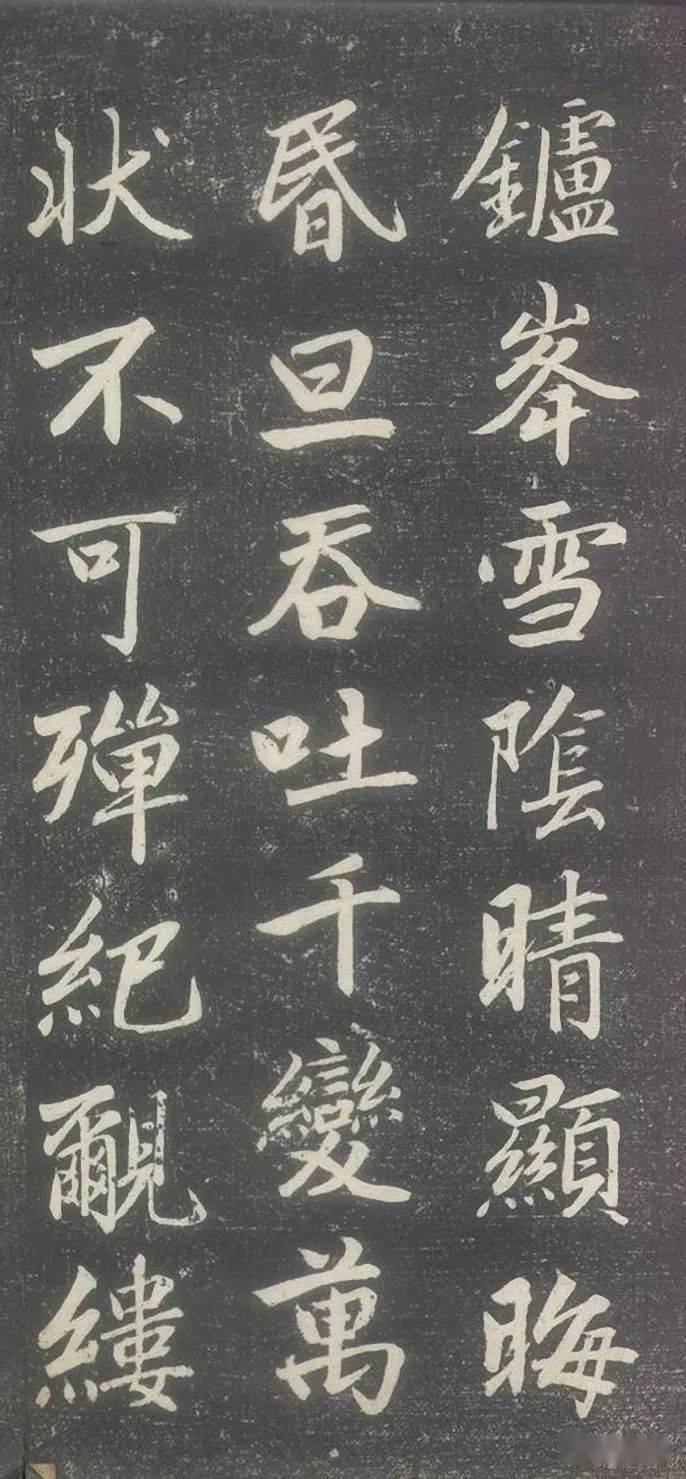 鑪峯雪陰晴顯晦
昏旦吞吐千變萬
狀不可殫紀覼縷